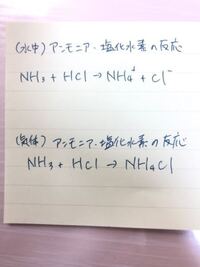 (水中) アンモニア・塩化水素の反応
NH₃ + HCl → NH₄⁺ + Cl⁻
(気体) アンモニア・塩化水素の反応
NH₃ + HCl → NH₄Cl